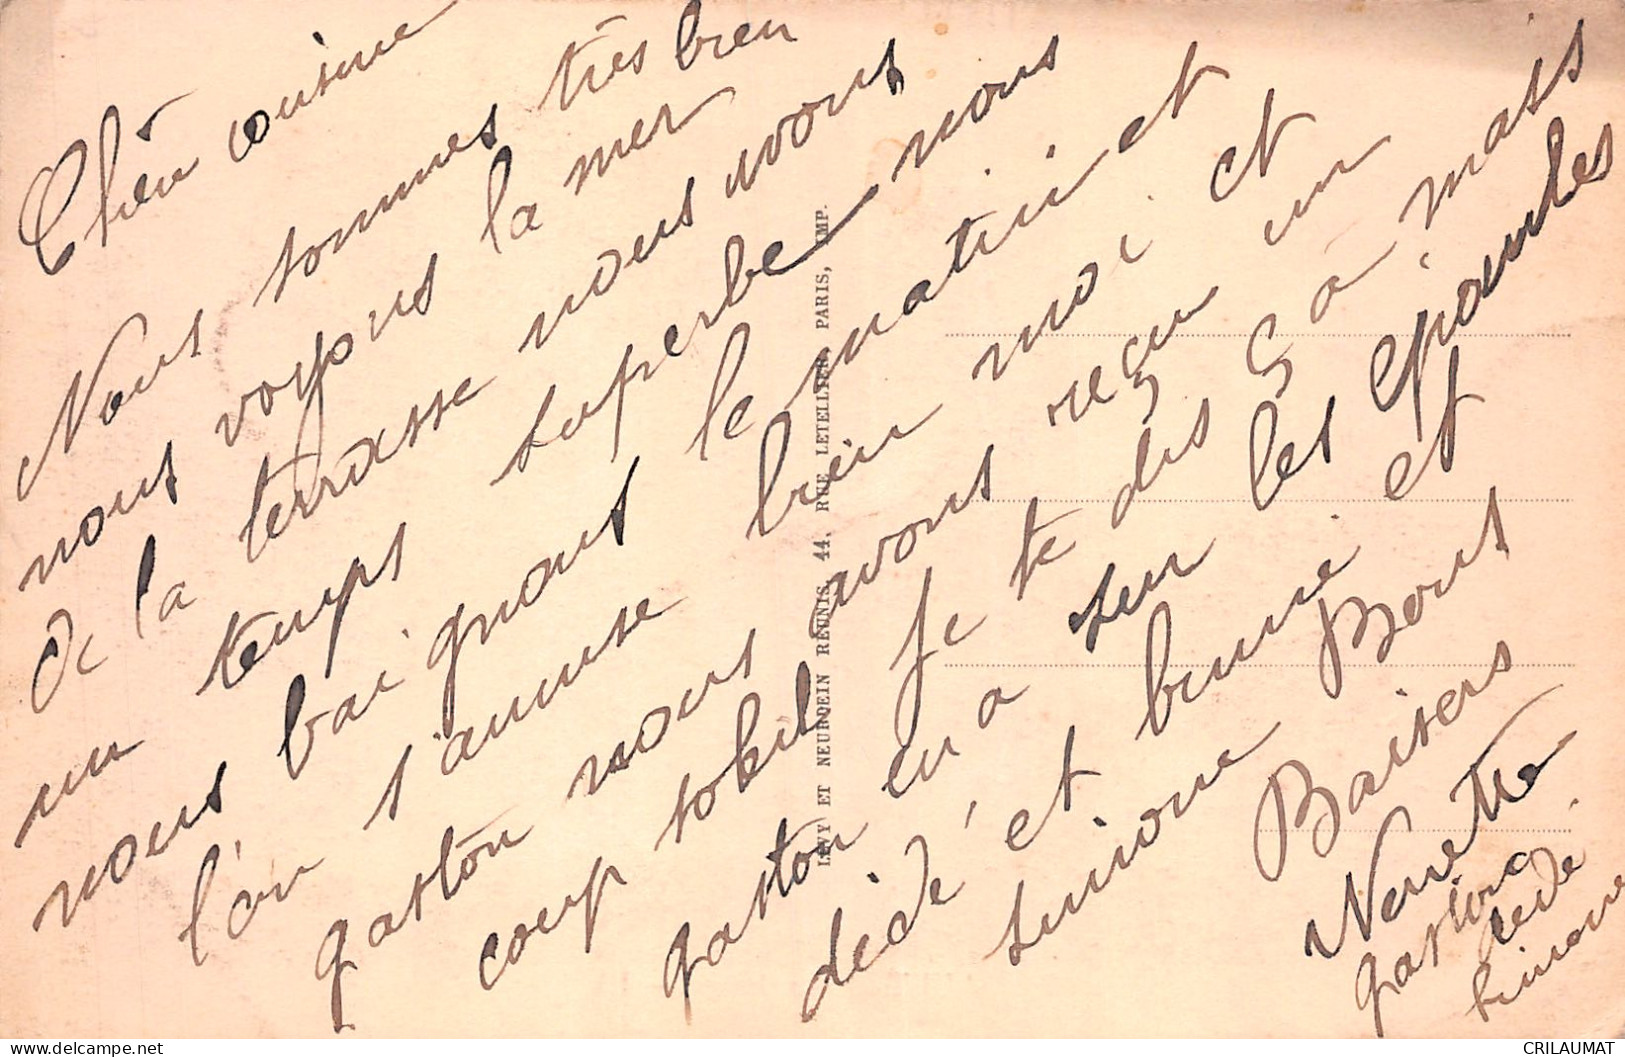 Chère cousine
Nous sommes très bien
nous voyons la mer
de la terrasse nous avons
un temps superbe nous
nous baignons le matin et
l'on s'amuse bien moi et
gaston nous avons reçu un
coup soleil je te dis ça mais
gaston en a sur les épaules
dédé et bruni et
simone Bons
Baisers
Nenette
gaston
dédé
simone
LÉVY ET NEURDEIN RÉUNIS, 44, RUE LETELLIER, PARIS, IMP.
CRILAUMAT